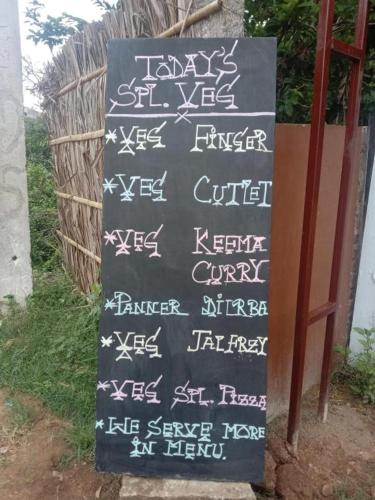 TODAY'S
SPL. VEG
*VEG FINGER
*VEG CUTLET
*VEG KEEMA
CURRY
*PANNER DILRBA
*VEG JALFRZY
*VEG SPL. PIZZA
*WE SERVE MORE
IN MENU.